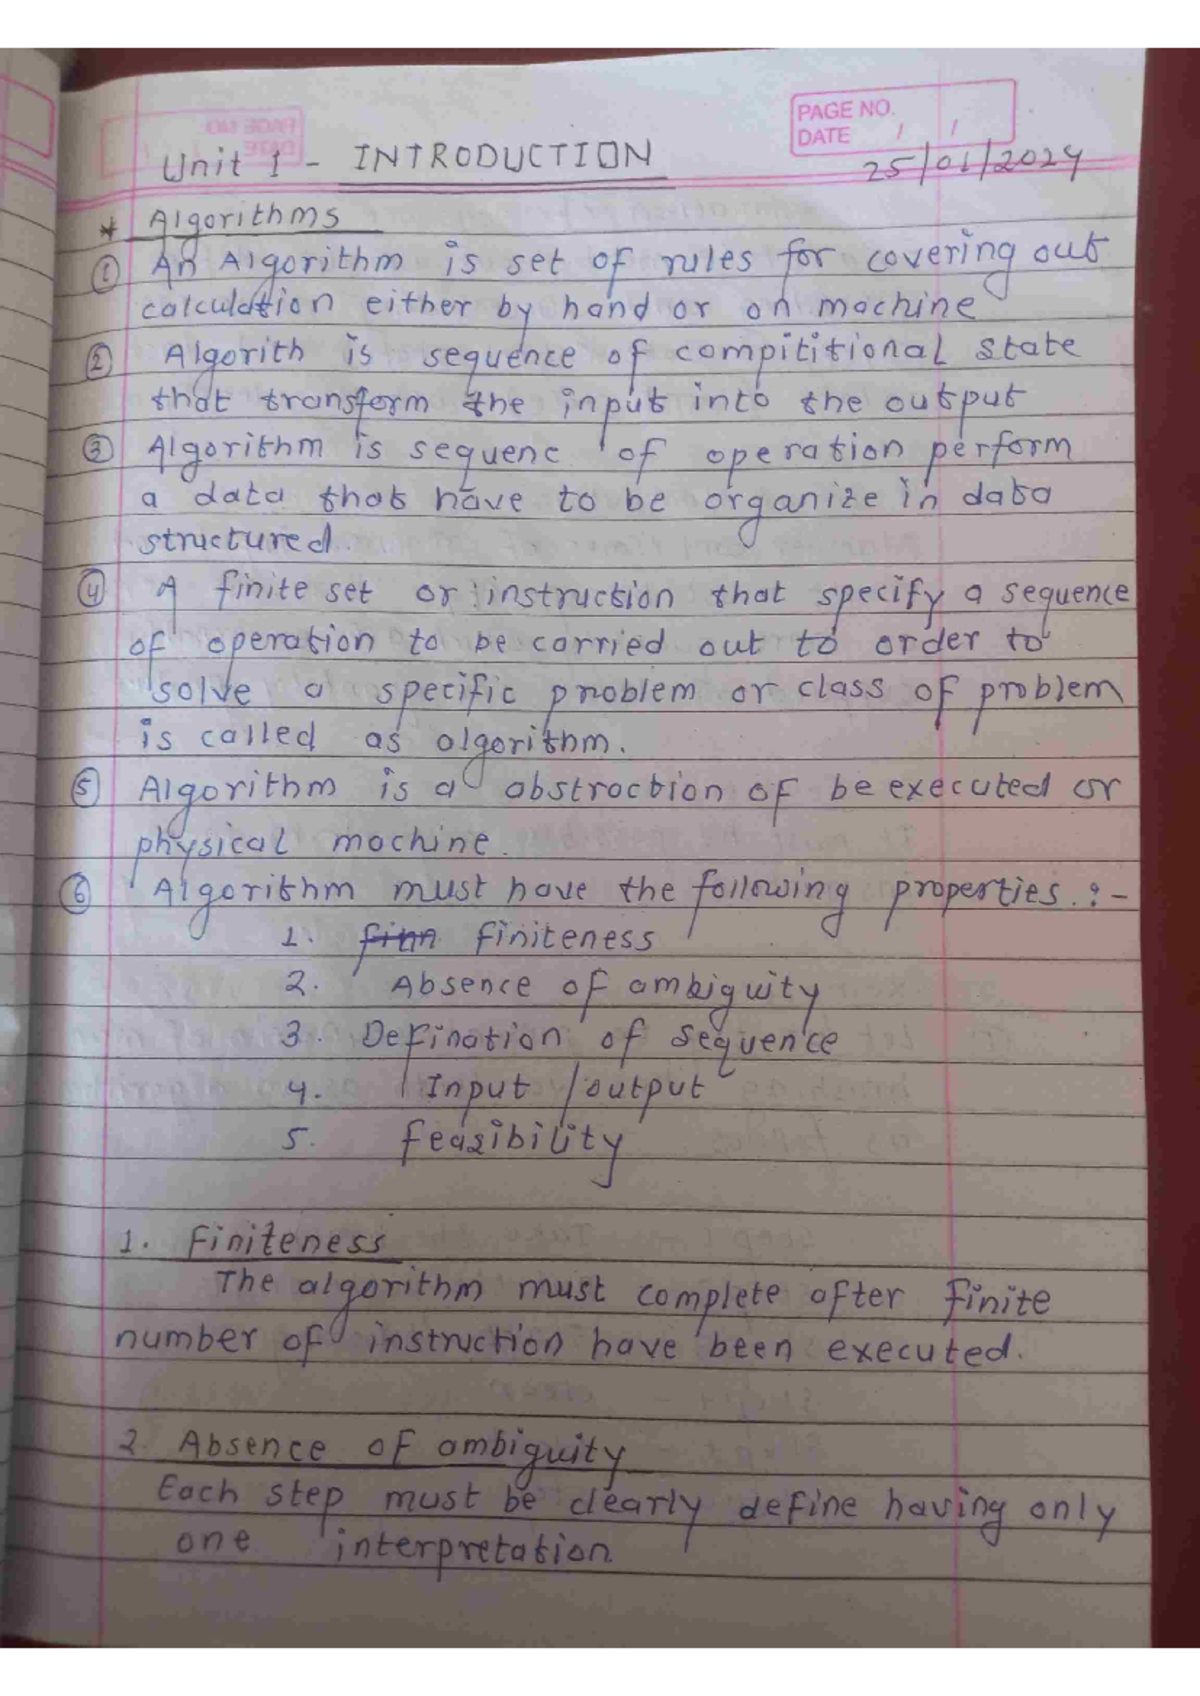 PAGE NO.
DATE / /
Unit 1 - INTRODUCTION
25/01/2024
* Algorithms
① An Algorithm is set of rules for covering out
calculation either by hand or on machine
② Algorith is sequence of compititional state
that transform the input into the output
③ Algorithm is sequenc of operation perform
a data that have to be organize in data
structured.
④ A finite set or instruction that specify a sequence
of operation to be carried out to order to
solve a specific problem or class of problem
is called as algorithm.
⑤ Algorithm is a abstraction of be executed or
physical machine.
⑥ Algorithm must have the following properties. :-
1. finn finiteness
2. Absence of ambiguity
3. Defination of sequence
4. Input / output
5. feasibility
1. Finiteness
The algorithm must complete after finite
number of instruction have been executed.
2. Absence of ambiguity
Each step must be clearly define having only
one interpretation